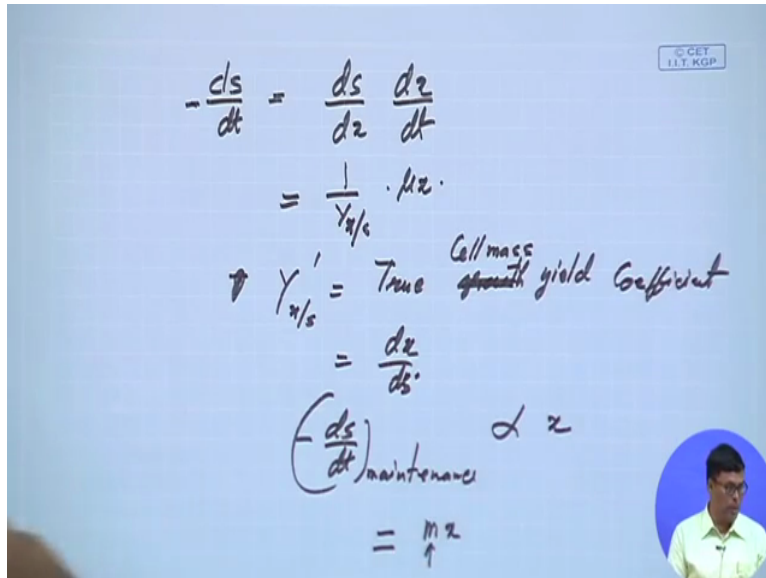 © CET
I.I.T. KGP
- ds/dt = ds/dx dx/dt
= 1/Y x/s . μx .
Y' x/s = True Cell mass yield Coefficient
= dx/ds .
(- ds/dt) maintenance α x
= mx
↑